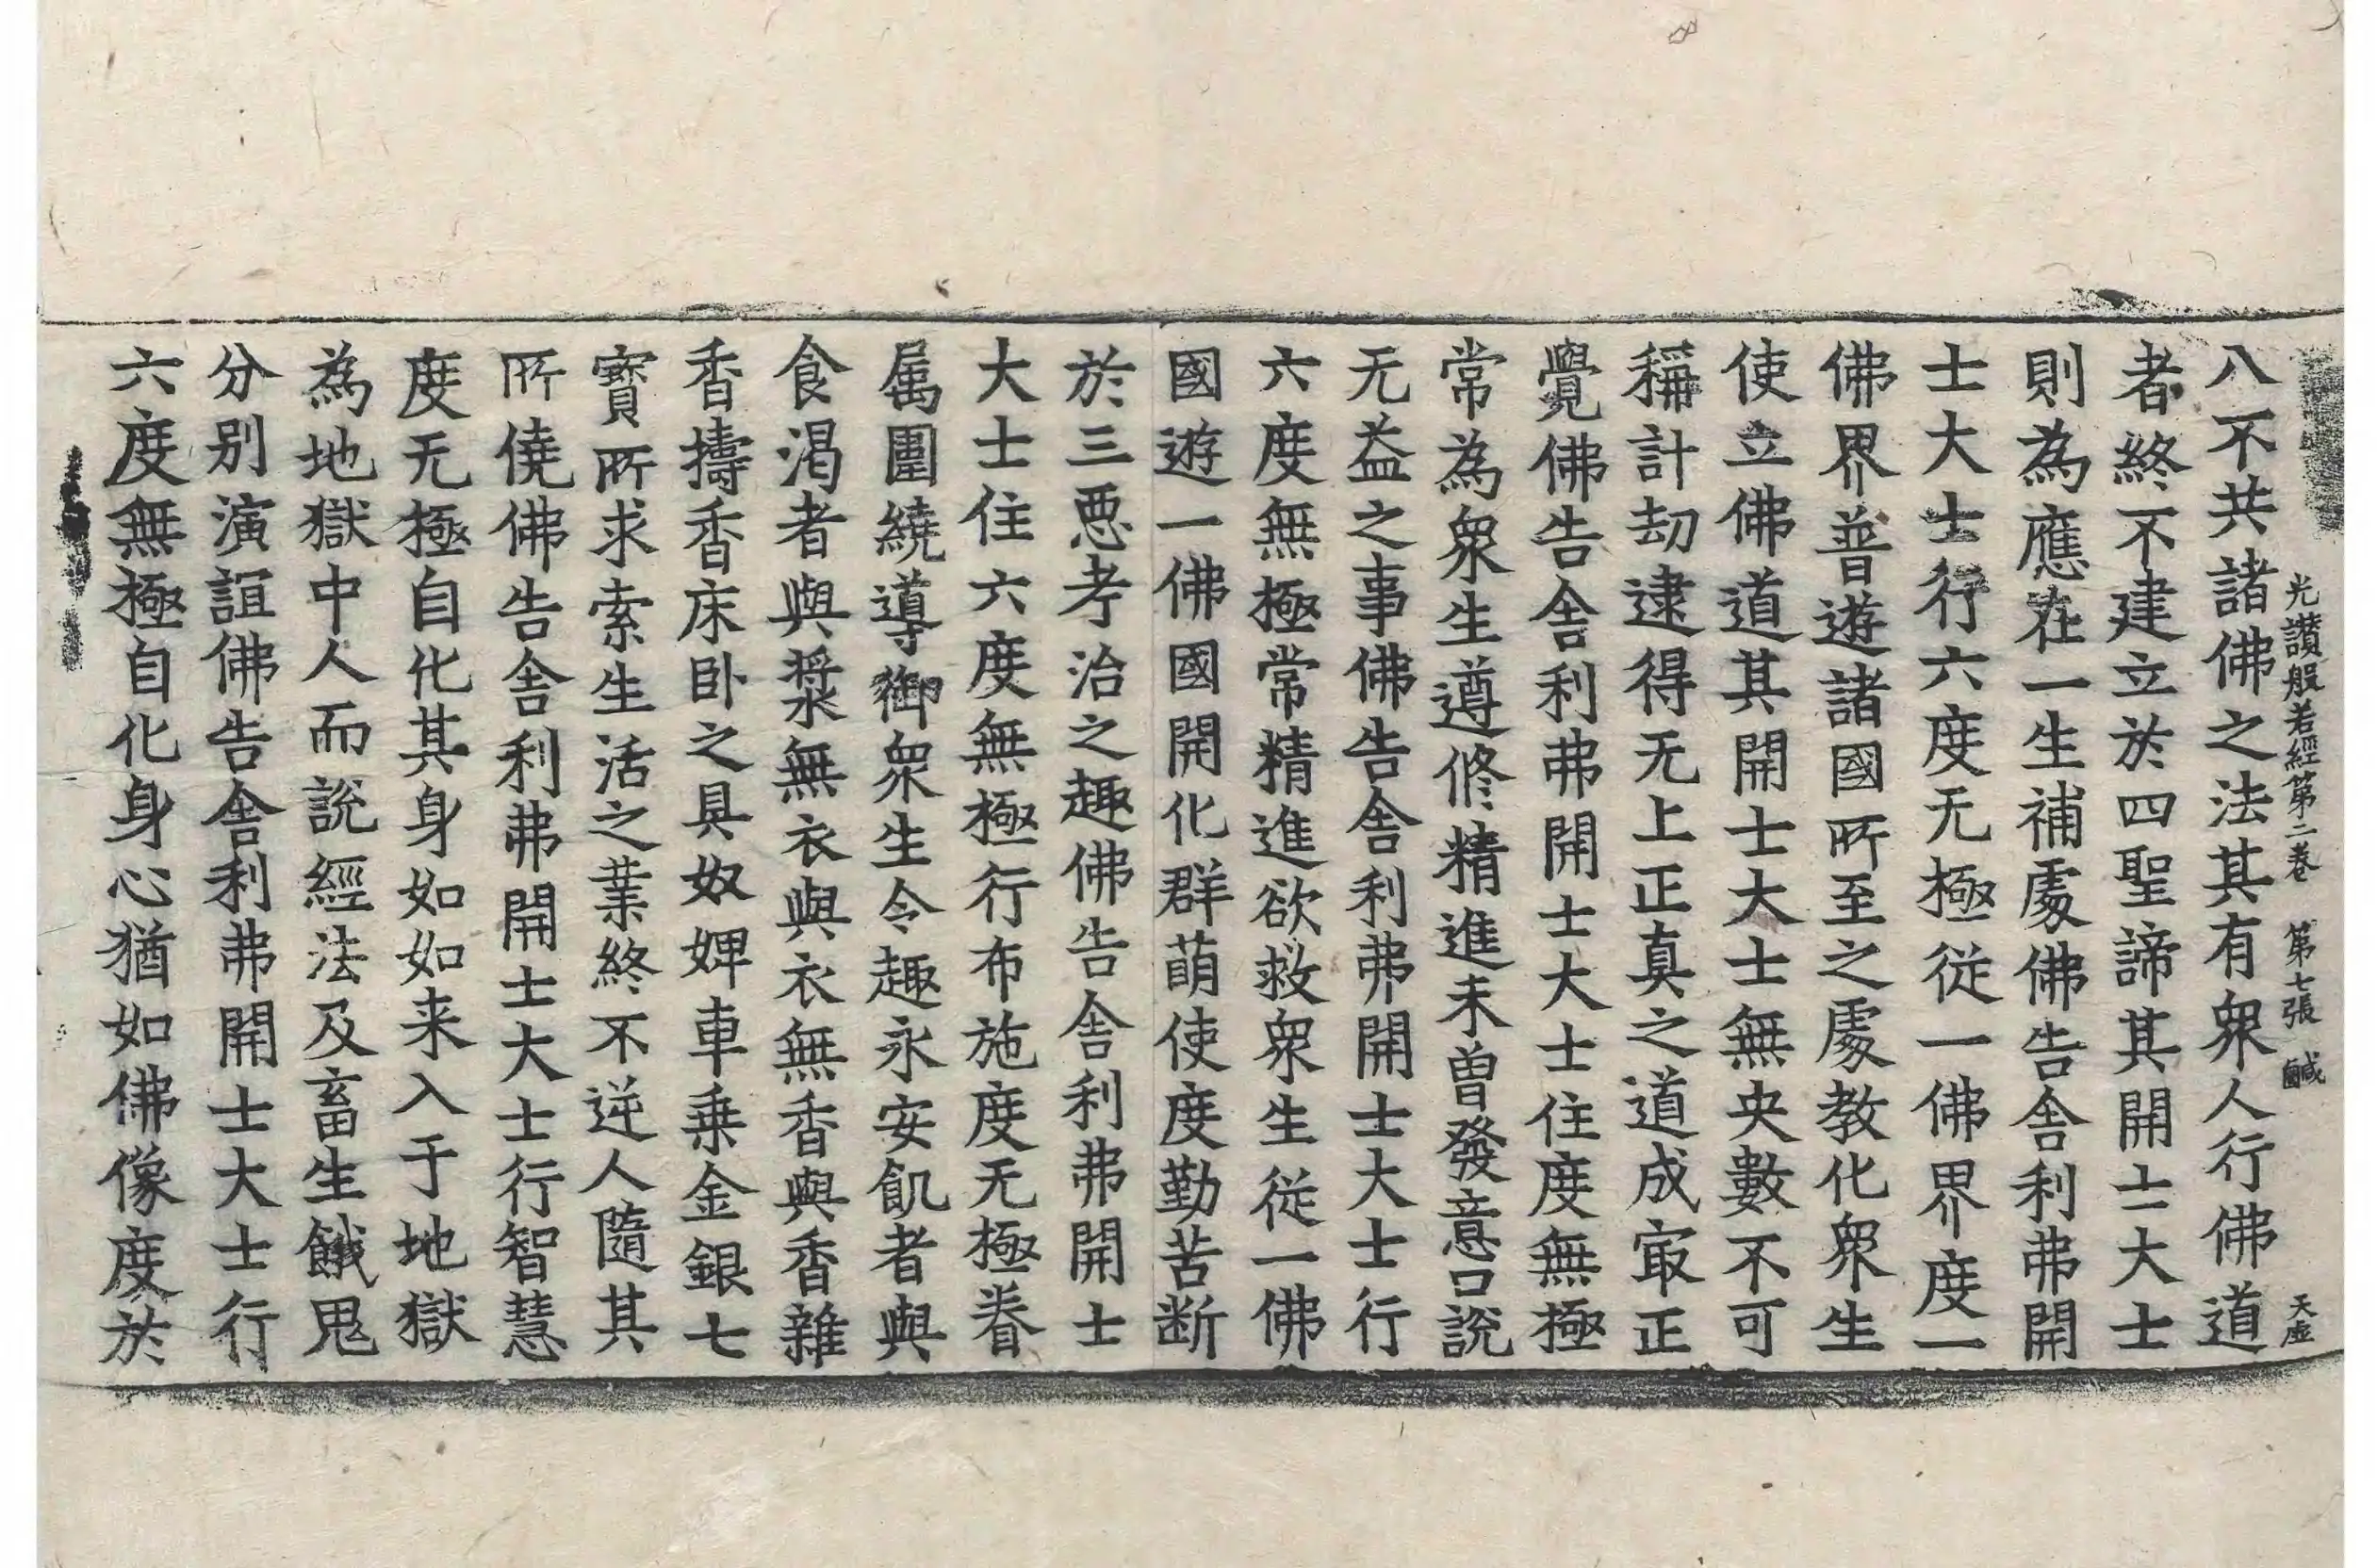 光讃般若經第二卷 第七張 鹹 天虛
八不共諸佛之法其有衆人行佛道
者終不建立於四聖諦其開士大士
則為應在一生補處佛告舍利弗開
士大士行六度无極從一佛界度一
佛界普遊諸國所至之處教化衆生
使立佛道其開士大士無央數不可
稱計劫逮得无上正真之道成㝡正
覺佛告舍利弗開士大士住度無極
常為衆生遵修精進未曽發意口說
无益之事佛告舍利弗開士大士行
六度無極常精進欲救衆生從一佛
國遊一佛國開化群萌使度勤苦断
於三惡考治之趣佛告舍利弗開士
大士住六度無極行布施度无極眷
属圍繞導御衆生令趣永安飢者與
食渴者與漿無衣與衣無香與香雜
香擣香床卧之具奴婢車乗金銀七
寳所求索生活之業終不逆人隨其
所僥佛告舍利弗開士大士行智慧
度无極自化其身如如来入于地獄
為地獄中人而說經法及畜生餓鬼
分别演誼佛告舍利弗開士大士行
六度無極自化身心猶如佛像度於